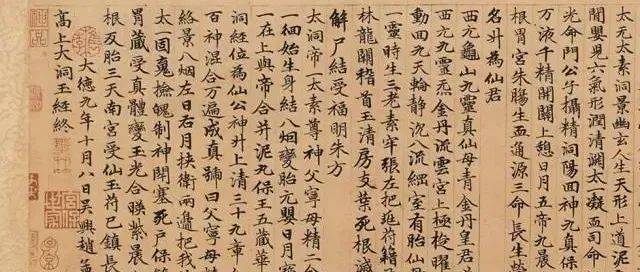 太元太素洞景幽玄人生天形上道泥
開嬰児六氣形潤清澗太一凝五司命
光命門公子攝精洞陽囬神九真保
万液千精開闢上憩日月五帝九晨
根胃宮朱腸生五通源三命長生
名升為仙君
西元龜山九靈真仙母青金丹皇君
西元九靈金丹流雲宮上極曜
動四九天輪静沉八流室有胎仙母
一靈時生三老素牢張左把班符籍
林龍闕稽首玉清房支葉死根滅
解尸結受福明朱方
太洞帝一太素尊神父寧母精二
一細始生身結八烟變胎元嬰日月
在上與帝合并泥九保王五藏華
洞經位為仙公神升上清三十九章
百神混合万遍成真號曰父寧母精
絡景八烟左日右月挾衛兩邊把我
太一固魂檢魄制神開塞死戶保
胃藏受真體變玉光合暎紫晨
根及胎三天南宮受仙玉符已鎮長
高上大洞玉經終
大德九年十月八日吳興趙孟